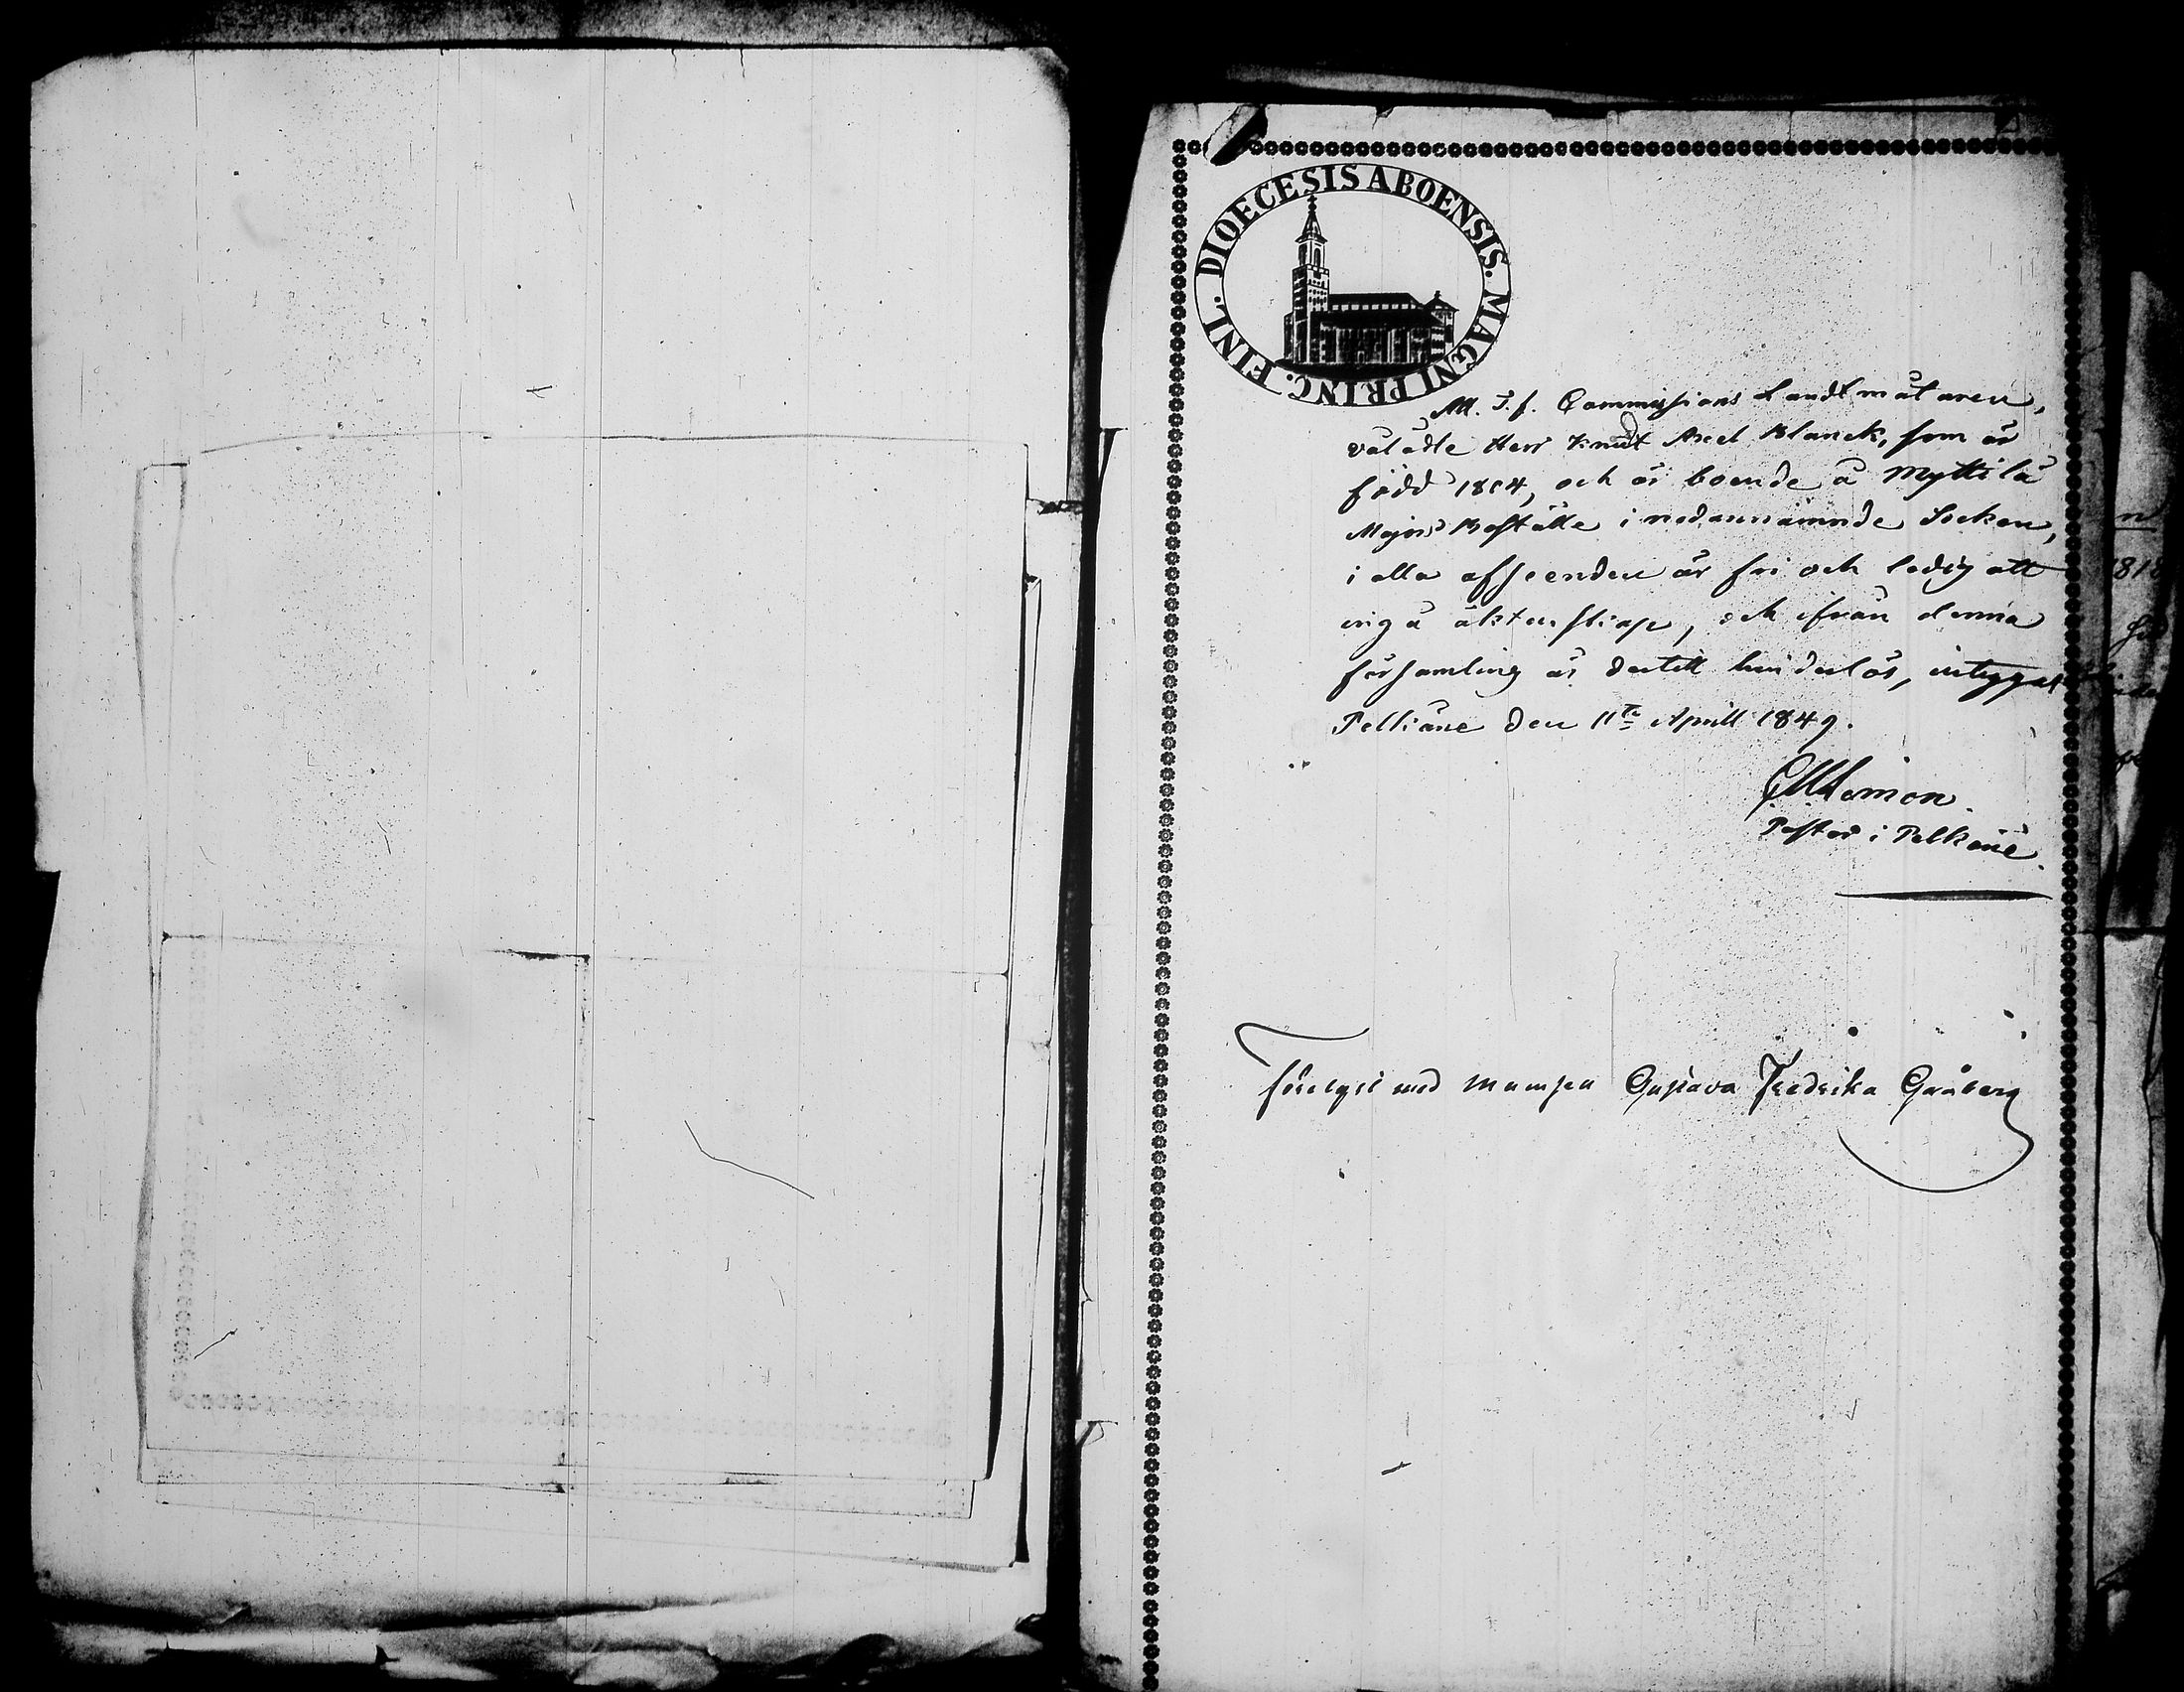 DIOECESIS ABOENSIS. MAGNI PRINC. FINL.
Att T. f. Commissions Landtmätaren,
välädle Herr Knut Axel Blanck, som är
född 1814, och är boende å Myttilä
Majors Boställe i nedannämnde Socken,
i alla afseenden är fri och ledig att
ingå äktenskap, och ifrån denna
församling är dertill hinderlös, intygas
Pelkäne den 11te April 1849.
Pastor i Pelkäne.
förelyst med mamsell Gustava Fredrika Gråberg
n
1818